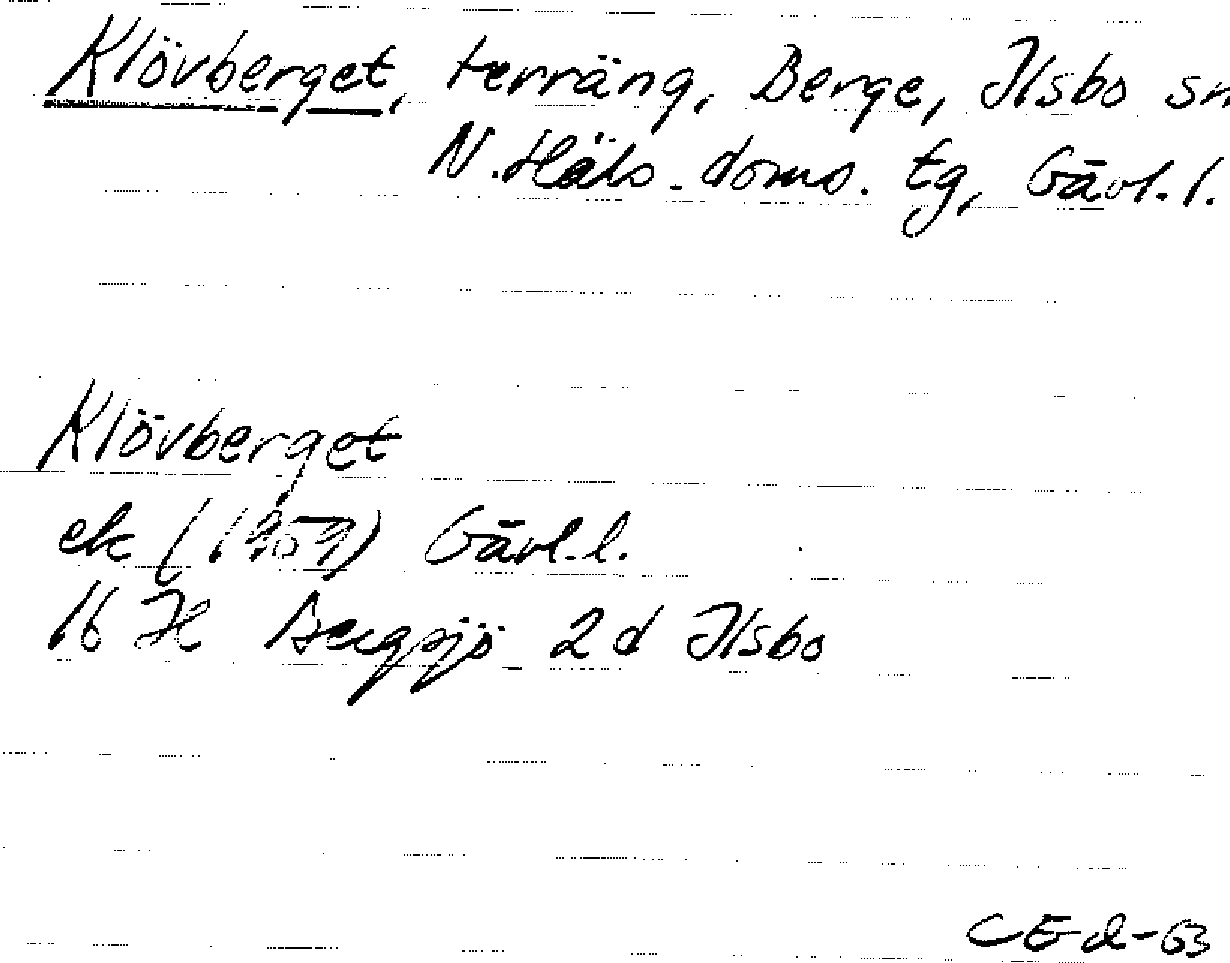 Klövberget, terräng, Berge, Ilsbo sn
N. Häls. doms. tg, Gävl. l.
Klövberget
ek (1959) Gävl. l.
16 H Bergsjö 2 d Ilsbo
CEd-63